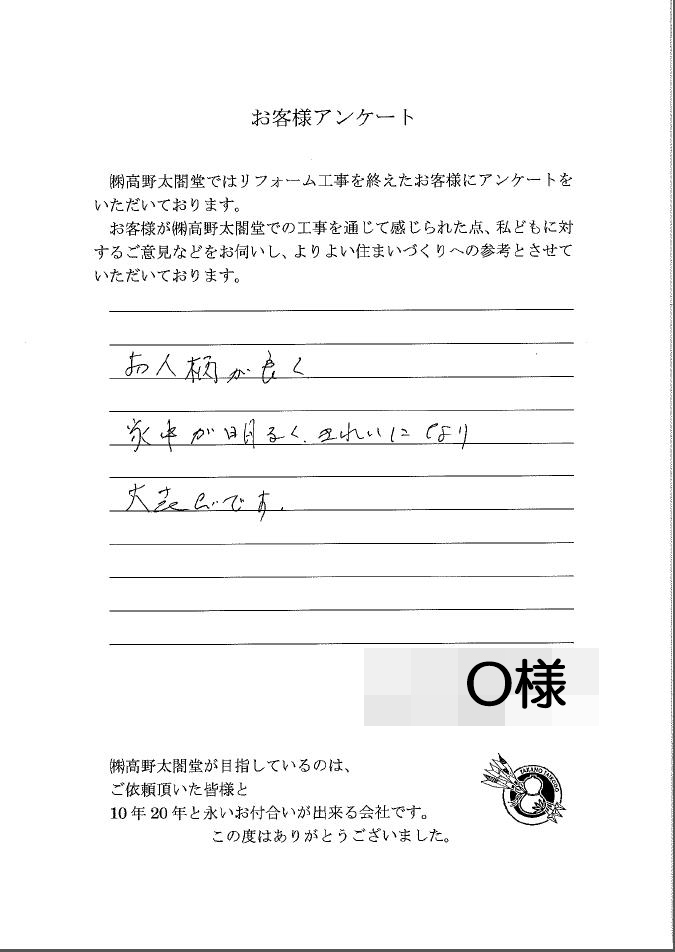 お客様アンケート
㈱高野太閤堂ではリフォーム工事を終えたお客様にアンケートを
いただいております。
お客様が㈱高野太閤堂での工事を通じて感じられた点、私どもに対
するご意見などをお伺いし、よりよい住まいづくりへの参考とさせて
いただいております。
お人柄が良く
家中が明るく、きれいになり
大喜びです.
O様
㈱高野太閤堂が目指しているのは、
ご依頼頂いた皆様と
10年20年と永いお付合いが出来る会社です。
この度はありがとうございました。